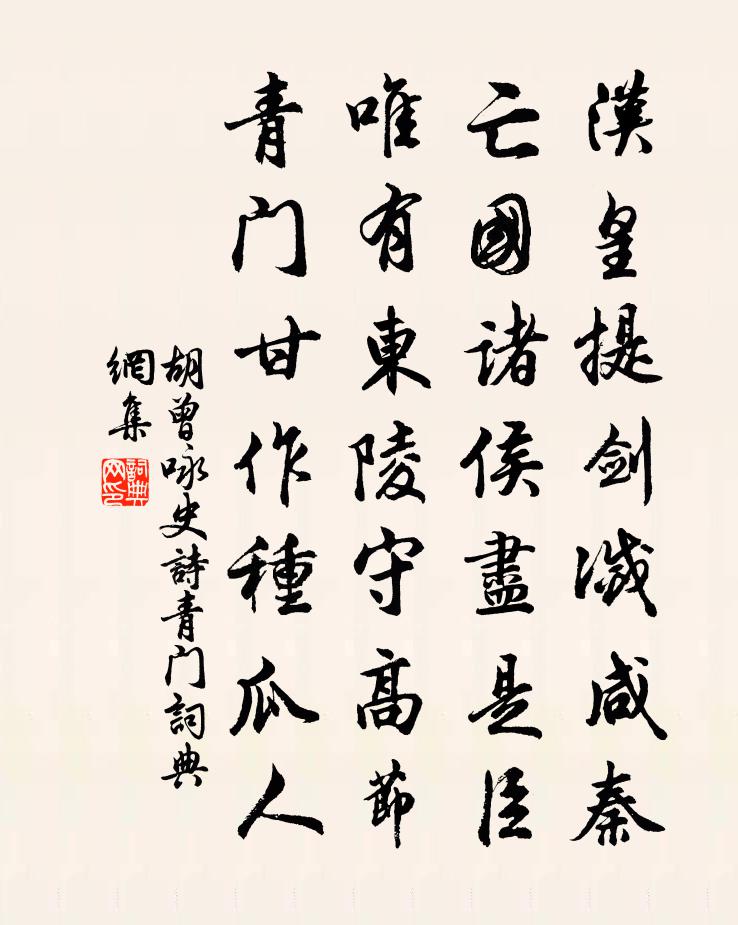 漢皇提劍滅咸秦
亡國諸侯盡是臣
唯有東陵守高節
青门甘作種瓜人
胡曾咏史詩青门詞典
網集
詞典
网印